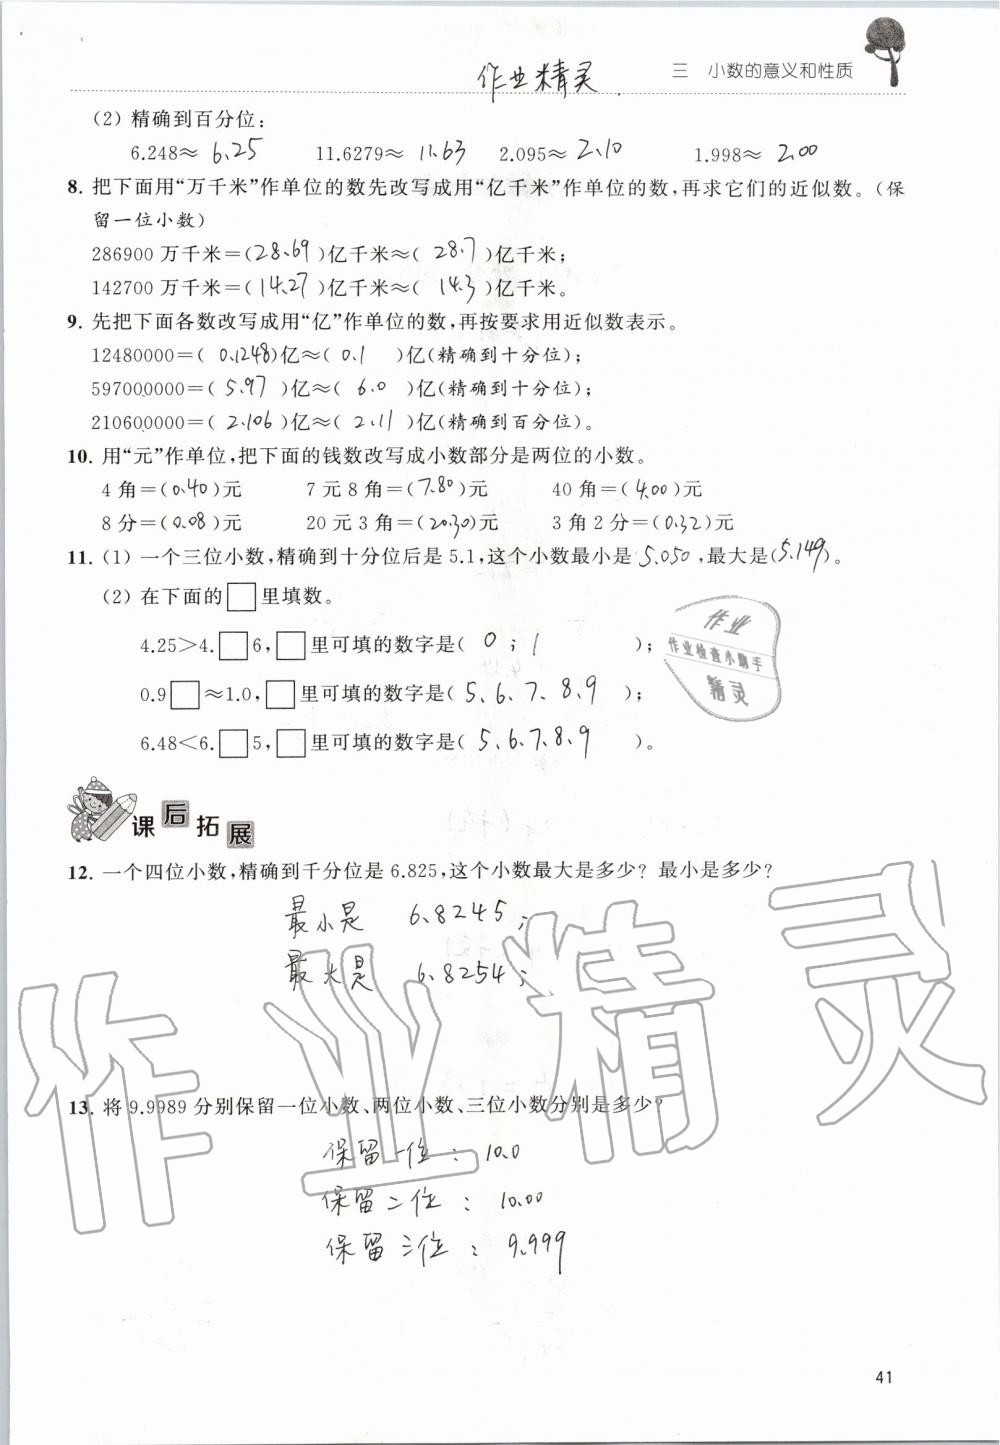 作业精灵
三 小数的意义和性质
(2) 精确到百分位:
6.248≈ 6.25 11.6279≈ 11.63 2.095≈ 2.10 1.998≈ 2.00
8. 把下面用“万千米”作单位的数先改写成用“亿千米”作单位的数,再求它们的近似数。(保
留一位小数)
286900 万千米=(28.69)亿千米≈( 28.7 )亿千米;
142700 万千米=(14.27)亿千米≈( 14.3 )亿千米。
9. 先把下面各数改写成用“亿”作单位的数,再按要求用近似数表示。
12480000=( 0.1248)亿≈( 0.1 )亿(精确到十分位);
597000000=( 5.97 )亿≈( 6.0 )亿(精确到十分位);
210600000=( 2.106 )亿≈( 2.11 )亿(精确到百分位)。
10. 用“元”作单位,把下面的钱数改写成小数部分是两位的小数。
4 角=(0.40)元 7 元 8 角=(7.80)元 40 角=(4.00)元
8 分=(0.08)元 20 元 3 角=(20.30)元 3 角 2 分=(0.32)元
11. (1) 一个三位小数,精确到十分位后是 5.1,这个小数最小是 5.050 ,最大是(5.149)。
(2) 在下面的□里填数。
4.25>4.□6,□里可填的数字是( 0 ; 1 );
0.9□≈1.0,□里可填的数字是( 5、6、7、8、9 );
6.48<6.□5,□里可填的数字是( 5、6、7、8、9 )。
作业
作业检查小助手
精灵
课后拓展
12. 一个四位小数,精确到千分位是 6.825,这个小数最大是多少? 最小是多少?
最小是 6.8245;
最大是 6.8254;
作业精灵
13. 将 9.9989 分别保留一位小数、两位小数、三位小数分别是多少?
保留一位: 10.0
保留二位: 10.00
保留三位: 9.999
41